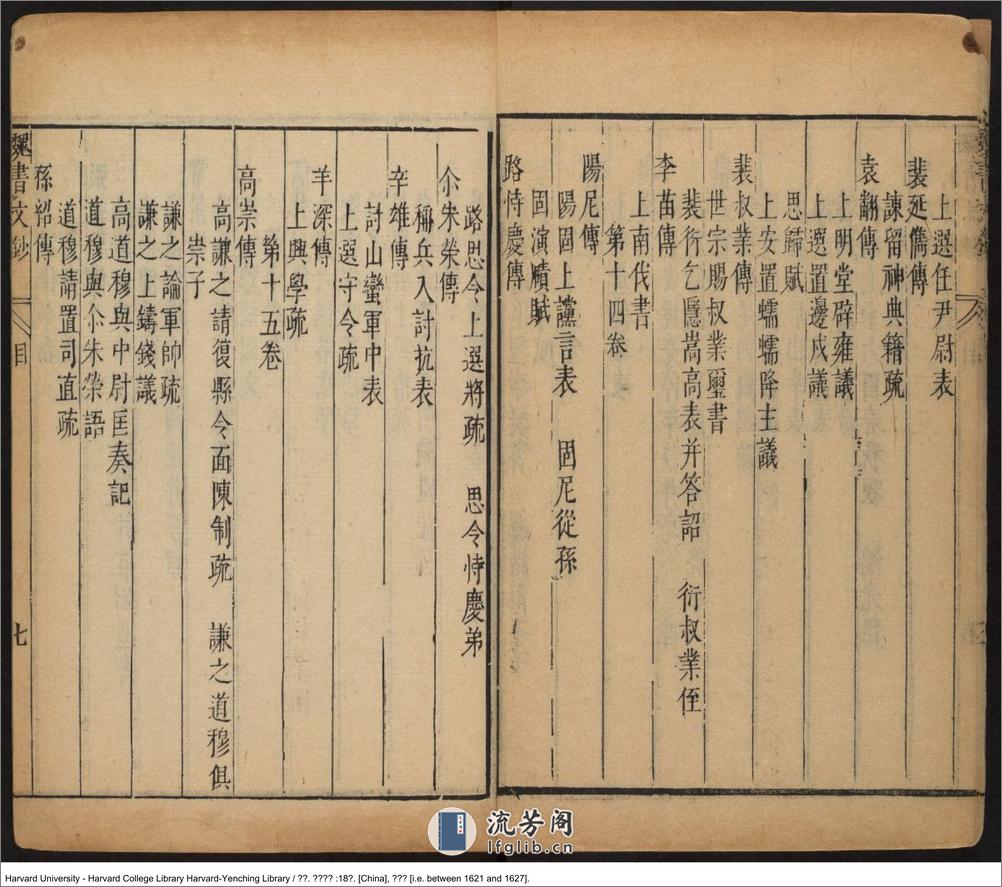 上選任尹尉表
裴延儁傳
諫留神典籍疏
袁翻傳
上明堂辟雍議
上選置邊戍議
思歸賦
上安置蠕蠕降主議
裴叔業傳
世宗賜叔業璽書
裴衍乞隱嵩高表并答詔 衍叔業侄
李苗傳
上南伐書
第十四卷
陽尼傳
陽固上讜言表 固尼從孫
固演賾賦
路恃慶傳
路思令上選將疏 思令恃慶弟
尒朱榮傳
稱兵入討抗表
辛雄傳
討山蠻軍中表
上選守令疏
羊深傳
上興學疏
第十五卷
高崇傳
高謙之請復縣令面陳制疏 謙之道穆俱
崇子
謙之論軍帥疏
謙之上鑄錢議
高道穆與中尉匡奏記
道穆與尒朱榮語
道穆請置司直疏
孫紹傳
魏書文鈔 目 七
流芳阁
lfglib.cn
Harvard University - Harvard College Library Harvard-Yenching Library / ??. ???? :18?. [China], ??? [i.e. between 1621 and 1627].